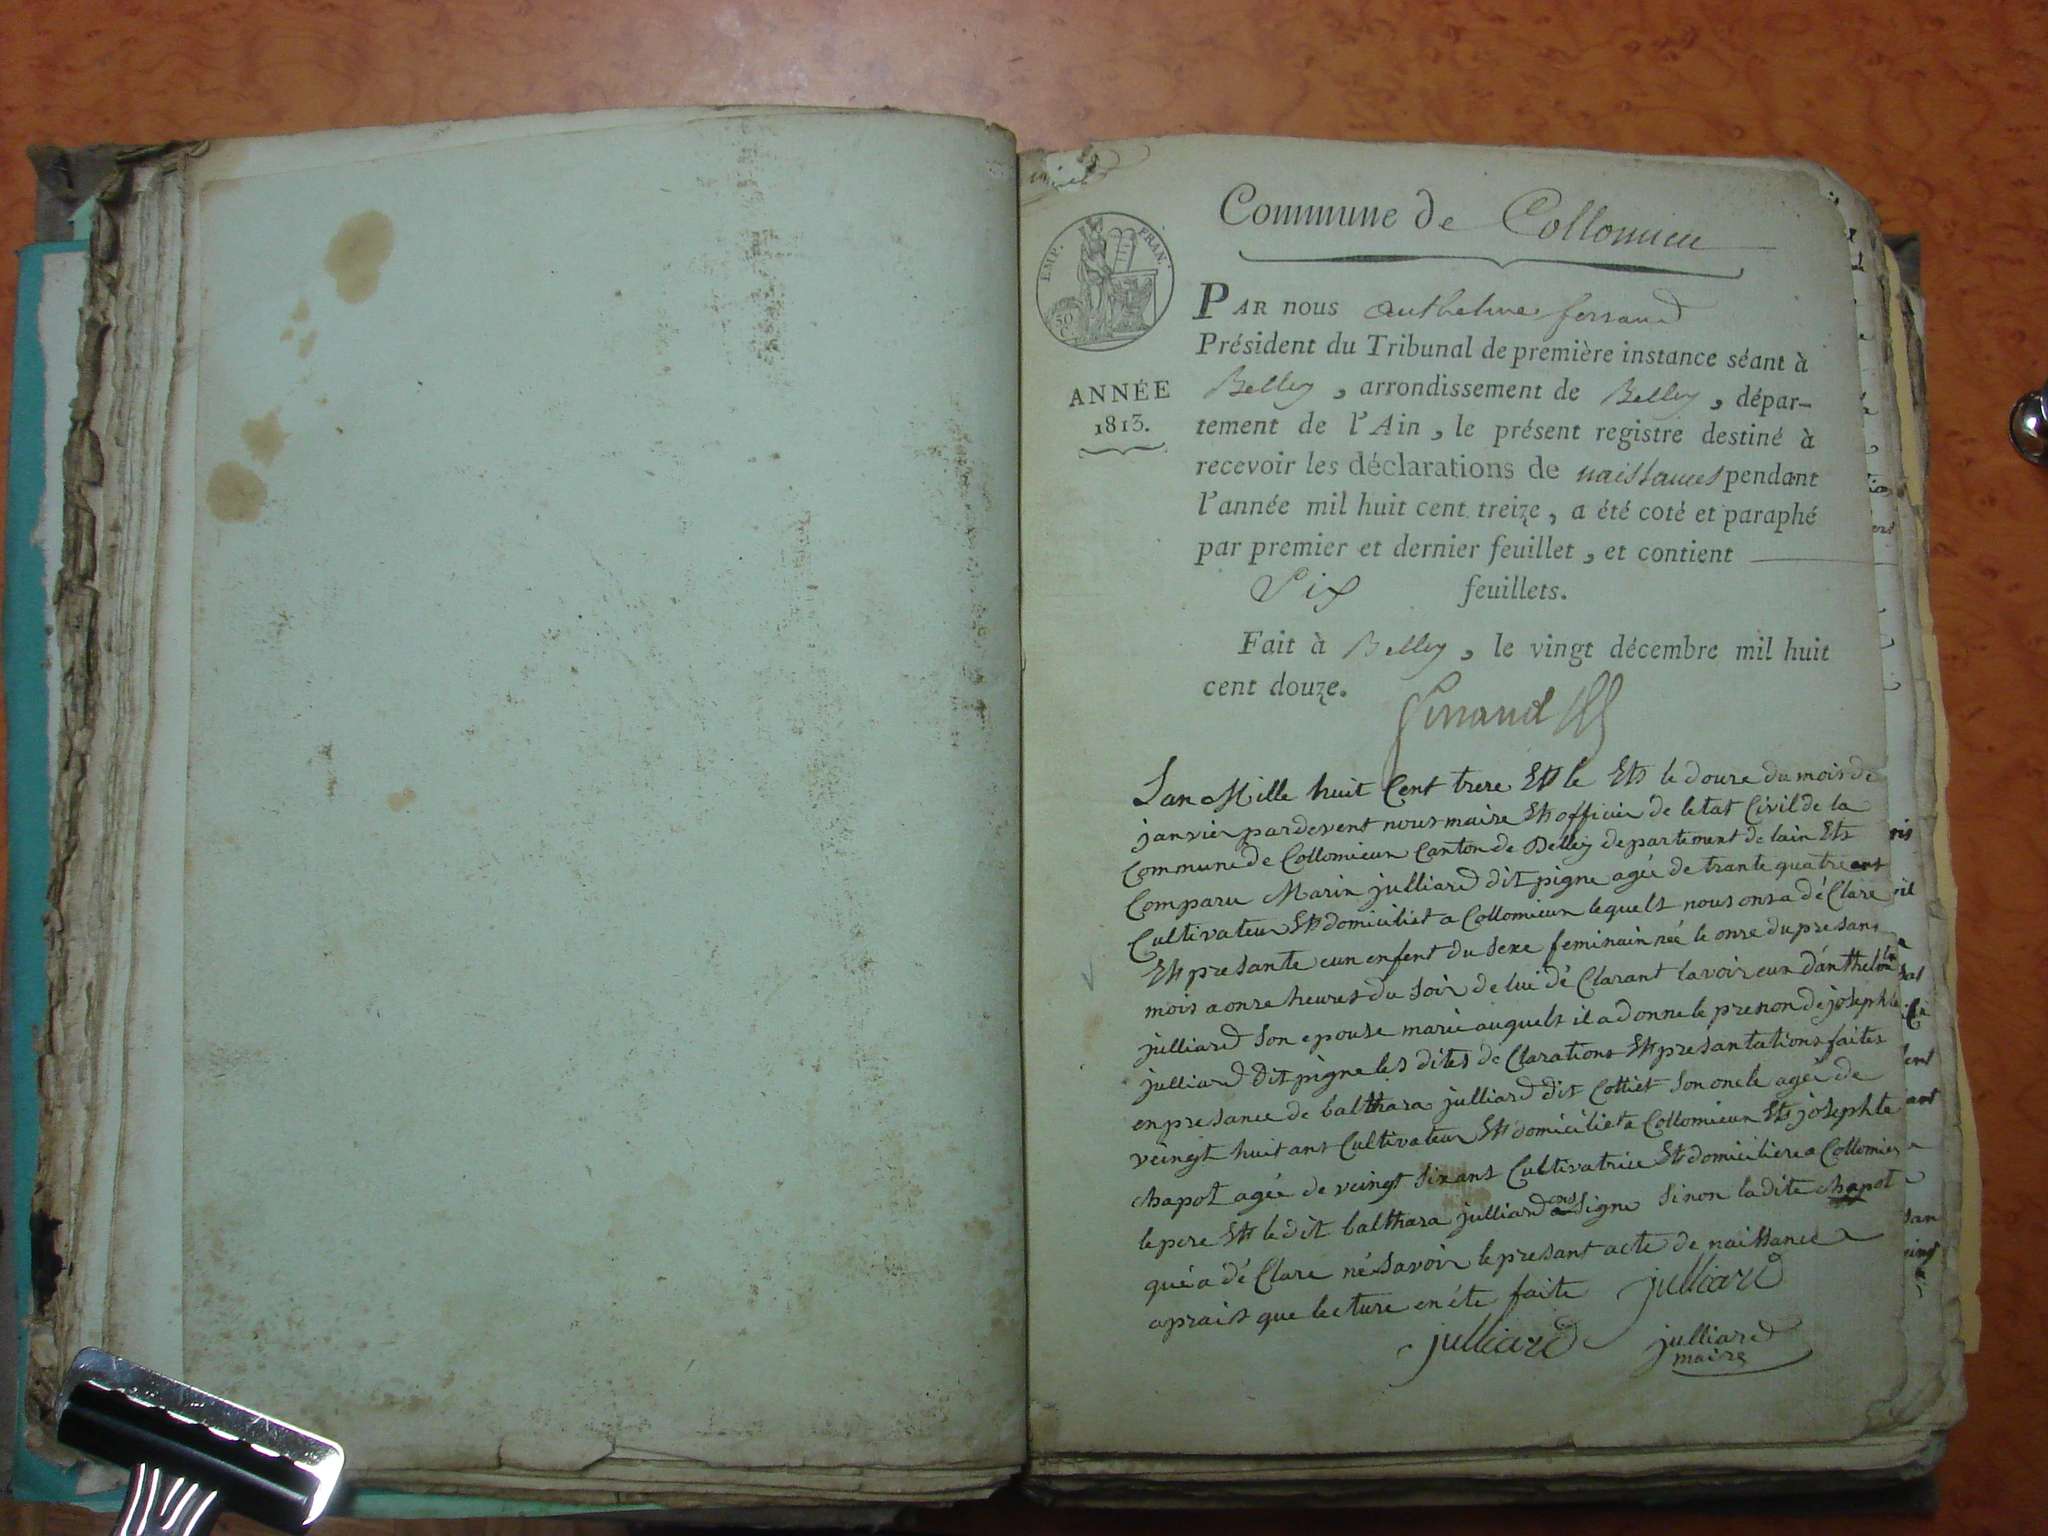 Commune de Collomieu
EMP. FRAN.
50
ANNÉE
1813.
PAR nous anthelme ferrand
Président du Tribunal de première instance séant à
Belley, arrondissement de Belley, dépar-
tement de l'Ain, le présent registre destiné à
recevoir les déclarations de naissances pendant
l'année mil huit cent treize, a été coté et paraphé
par premier et dernier feuillet, et contient
Six feuillets.
Fait à Belley, le vingt décembre mil huit
cent douze.
ferrand
Lan Mille huit Cent treze Et le Et le douze du mois de
janvier pardevent nous maire Et officier de letat Civil de la
Commune de Collomieux Canton de Belley departement de lain Et
Comparu Marin julliard dit pigne agée de trante quatre ans
Cultivateur Et domiciliet a Collomieux lequels nous onsa dé Clare
Et presante eun enfent du sexe feminain née le onze du presant
mois a onze heures du soir de lui dé Clarant lavoir eun d'anthelme
julliard son epouse marie auquels il a donne le prenon de josephte
julliard dit pigne les dites de Clarations Et presantations faites
en presance de balthara julliard dit Cottiet son oncle agée de
veingt huit ans Cultivateur Et domiciliet a Collomieux Et josephte
chapot agée de veingt six ans Cultivatrice Et domiciliere a Collomieu
le pere Et le dit balthara julliard ons signe sinon ladite chapot
qué a dé Clare né savoir le presant acte de naissance
aprais que lecture en éte faite julliard
julliard julliard
maire